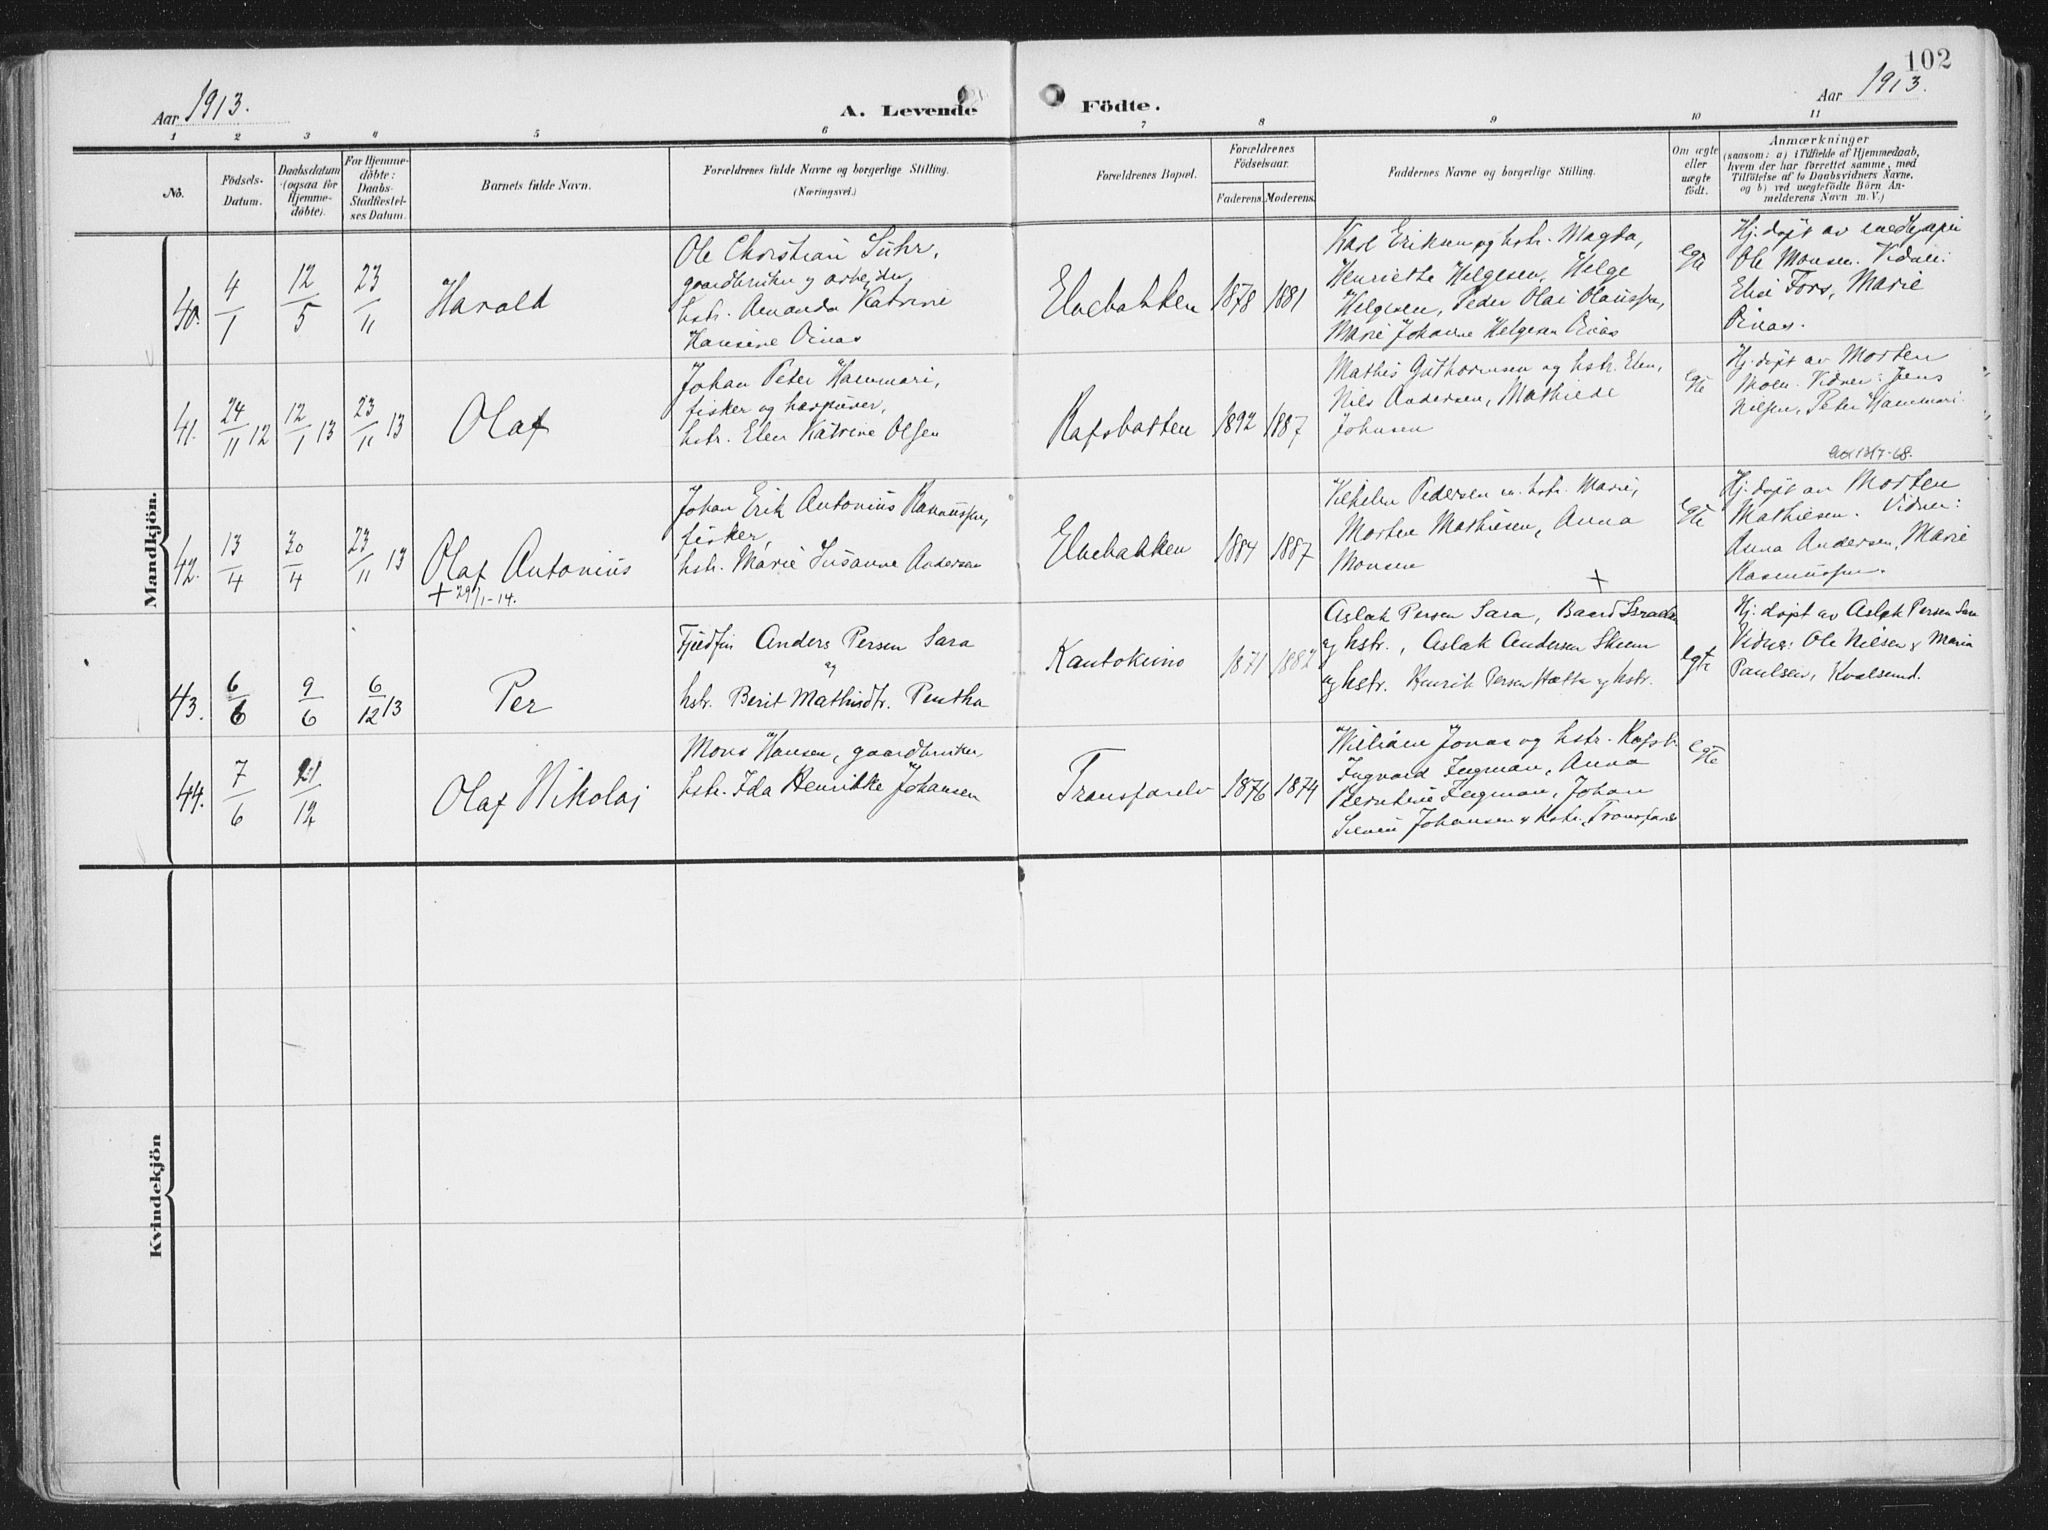 102
Aar 1913.
A. Levende
Födte.
Aar 1913.
1 2 3 4 5 6 7 8 9 10 11
No.
Födsels-
Datum.
Daabsdatum
(ogsaa for
Hjemme-
döbte).
For Hjemme-
döbte:
Daabs-
Stadfæstel-
ses Datum.
Barnets fulde Navn.
Forældrenes fulde Navne og borgerlige Stilling.
(Næringsvei.)
Forældrenes Bopæl.
Forældrenes
Födselsaar.
Faderens.
Moderens.
Faddernes Navne og borgerlige Stilling.
Om ægte
eller
uægte
födt.
Anmærkninger
(saasom: a) i Tilfælde af Hjemmedaab,
hvem der har forrettet samme, med
Tilföielse af to Daabsvidners Navne,
og b) ved uægtefödte Börn An-
melderens Navn m. V.)
Mandkjön.
40.
4/1
12/5
23/11
Harald
Ole Christian Suhr,
gaardbruker og arbeider,
hstr. Amanda Katrine
Hansine
Elvebakken
1878
1881
Karl Eriksen og hstr. Magda,
Henriette Helgesen, Helge
Helgesen, Peder Olai Olaussen,
Marie Johanne Helgesen
egte
Hj. døpt av
Ole Monsen. Vidner:
Elise Fors, Marie
41.
24/11 12
12/1 13
23/11 13
Olaf
Johan Peter Hammari,
fisker og harpuner,
hstr. Elen Katrine Olsen
Rafsbotten
1892
1887
Mathis Guthormsen og hstr. Elen,
Nils Andersen, Mathilde
Johnsen
egte
Hj. døpt av Morten
Moen. Vidner: Jens
Nilsen, Peter Hammari.
13/7-68.
42.
13/4
30/4
23/11 13
Olaf Antonius
+ 29/1-14.
Johan Erik Antonius Rasmussen,
fisker,
hstr. Marie Susanne Andersen
Elvebakken
1884
1887
Vilhelm Pedersen m. hstr. Marie,
Morten Mathiesen, Anna
Monsen
+
egte
Hj. døpt av Morten
Mathiesen. Vidner:
Anna Andersen, Marie
Rasmussen.
43.
6/6
9/6
6/12 13
Per
Fjeldfin Anders Persen Sara
og
hstr. Berit Mathisdtr. Pentha
Kautokeino
1871
1882
Aslak Persen Sara, Baard Israelsen
og hstr., Aslak Andersen Skum
og hstr. Henrik Persen Hætta og hstr.
egte
Hj. døpt av Aslak Persen Sara
Vidner: Ole Nilsen & Maria
Paulsen, Kvalsund.
44.
7/6
21/12
Olaf Nikolai
Mons Hansen, gaardbruker
hstr. Ida Henrikke Johansen
Transfarelv
1876
1874
William Jonas og hstr. Rafsb.
Ingvard Ingman, Anna
Berntine Ingman, Johan
Johansen & hstr. Transfarelv
egte
Kvindekjön